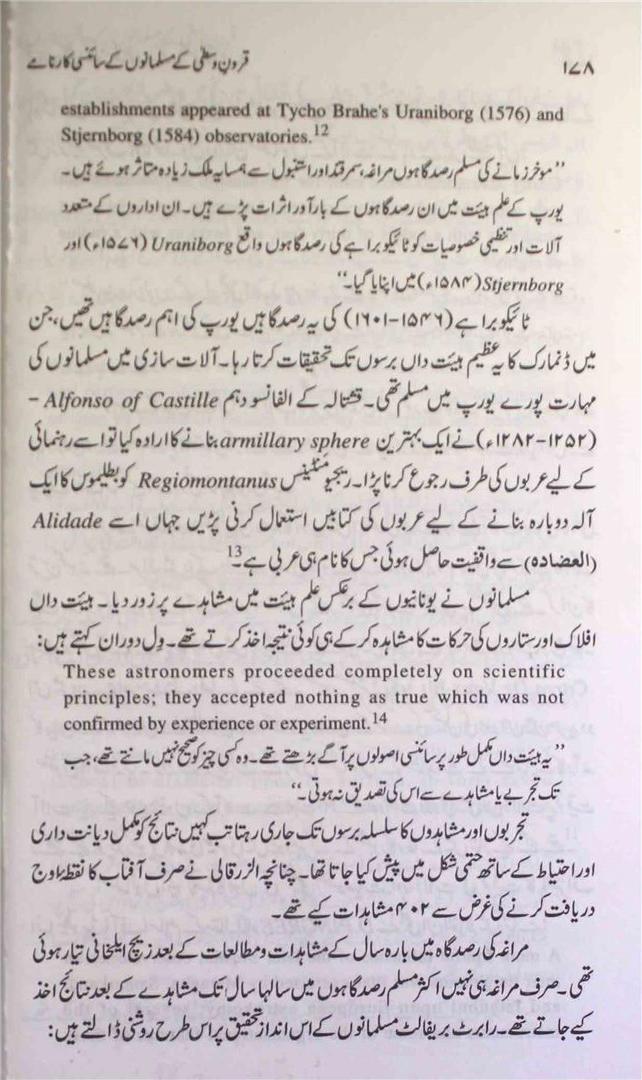 ۱۷۸ قرونِ وسطٰی کے مسلمانوں کے سائنسی کارنامے
establishments appeared at Tycho Brahe's Uraniborg (1576) and
Stjernborg (1584) observatories.12
”موخر زمانے کی مسلم رصدگاہوں مراغہ، سمرقند اور استنبول سے ہمسایہ ملک زیادہ متاثر ہوئے ہیں۔
یورپ کے علم ہیئت میں ان رصدگاہوں کے بارآور اثرات پڑے ہیں۔ ان اداروں کے متعدد
آلات اور تنظیمی خصوصیات کو ٹائیکو براہے کی رصدگاہوں واقع Uraniborg (۱۵۷۶ء) اور
Stjernborg (۱۵۸۴ء) میں اپنایا گیا۔“
ٹائیکو براہے (۱۵۴۶-۱۶۰۱) کی یہ رصدگاہیں یورپ کی اہم رصدگاہیں تھیں، جن
میں ڈنمارک کا یہ عظیم ہیئت داں برسوں تک تحقیقات کرتا رہا۔ آلات سازی میں مسلمانوں کی
مہارت پورے یورپ میں مسلم تھی۔ قشتالہ کے الفانسو دہم Alfonso of Castille -
(۱۲۵۲-۱۲۸۲ء) نے ایک بہترین armillary sphere بنانے کا ارادہ کیا تو اسے رہنمائی
کے لیے عربوں کی طرف رجوع کرنا پڑا۔ ریجیو منٹینس Regiomontanus کو بطلیموس کا ایک
آلہ دوبارہ بنانے کے لیے عربوں کی کتابیں استعمال کرنی پڑیں جہاں اسے Alidade
(العضادہ) سے واقفیت حاصل ہوئی جس کا نام ہی عربی ہے۔13
مسلمانوں نے یونانیوں کے برعکس علم ہیئت میں مشاہدے پر زور دیا۔ ہیئت داں
افلاک اور ستاروں کی حرکات کا مشاہدہ کر کے ہی کوئی نتیجہ اخذ کرتے تھے۔ وِل دوران کہتے ہیں:
These astronomers proceeded completely on scientific
principles; they accepted nothing as true which was not
confirmed by experience or experiment.14
”یہ ہیئت داں مکمل طور پر سائنسی اصولوں پر آگے بڑھتے تھے۔ وہ کسی چیز کو صحیح نہیں مانتے تھے، جب
تک تجربے یا مشاہدے سے اس کی تصدیق نہ ہوتی۔“
تجربوں اور مشاہدوں کا سلسلہ برسوں تک جاری رہتا تب کہیں نتائج کو مکمل دیانت داری
اور احتیاط کے ساتھ حتمی شکل میں پیش کیا جاتا تھا۔ چنانچہ الزرقالی نے صرف آفتاب کا نقطۂ اوج
دریافت کرنے کی غرض سے ۴۰۲ مشاہدات کیے تھے۔
مراغہ کی رصدگاہ میں بارہ سال کے مشاہدات و مطالعات کے بعد زیچ ایلخانی تیار ہوئی
تھی۔ صرف مراغہ ہی نہیں اکثر مسلم رصدگاہوں میں سالہا سال تک مشاہدے کے بعد نتائج اخذ
کیے جاتے تھے۔ رابرٹ بریفالٹ مسلمانوں کے اس انداز تحقیق پر اس طرح روشنی ڈالتے ہیں: